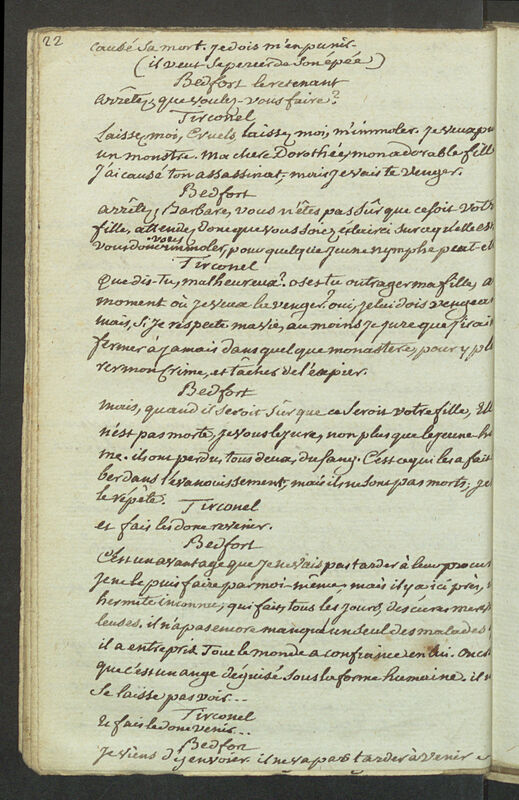 22
causé sa mort. je dois m'en punir.
(il veut se percer de son épée)
Bedfort le retenant
arrêtez, que voulez-vous faire?
Tirconel
Laissez moi, Cruels, laissez moi, m'immoler. je veux pu
un monstre. ma chere Dorothée, mon adorable fille
j'ai causé ton assassinat, mais je vais te venger.
Bedfort
arrêtez, Barbare, vous n'êtes pas sûr que ce soit vot
fille, attendez donc que vous soiez éclairci surce qu'elle est
vous donc vous immoler, pour quelque jeune nymphe peut-et
Tirconel
Que dis-tu, malheureux? oses tu outrager ma fille, a
moment où je veux la venger? oui, je lui dois vengea
mais, si je respecte ma vie, au moins je jure que j'irai
fermer à jamais dans quelque monastere, pour y pl
rer mon crime, et tâcher de l'expier.
Bedfort
mais, quand il seroit sûr que ce seroit votre fille, Ell
n'est pas morte, je vous le jure, non plus que le jeune ho
me. ils ont perdu, tous deux, du sang. C'est ce qui les a fait
ber dans l'évanouissement, mais ils ne sont pas morts; je
le répête.
Tirconel
et fais les donc revenir.
Bedfort
C'est un avantage que je ne vais pas tarder à leur procur
je ne le puis faire par moi-même, mais il y a ici près,
hermite inconnu, qui fait, tous les jours, des cures merve
leuses. il n'a pas encore manqué un seul des malades
il a entrepris. Tout le monde a confiance en lui. On c
que c'est un ange déguisé sous la forme humaine. il n
se laisse pas voir...
Tirconel
Et fais le donc venir...
Bedfort
je viens d'y envoier. il ne va pas tarder à venir